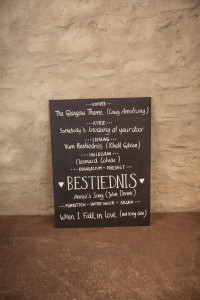 ENTRÉE
The Glasgow Theme (Craig Armstrong)
KYRIE
Somebody's knocking at your door
LESUNG
Vum Bestiednis (Khalil Gibran)
HALLELUJAH
(Leonard Cohen)
EVANGELIUM - PRIEDEGT
♥ BESTIEDNIS ♥
Annie's Song (John Denver)
FÜRBITTEN - VATER UNSER - SEGEN
When I Fall in Love (Nat King Cole)